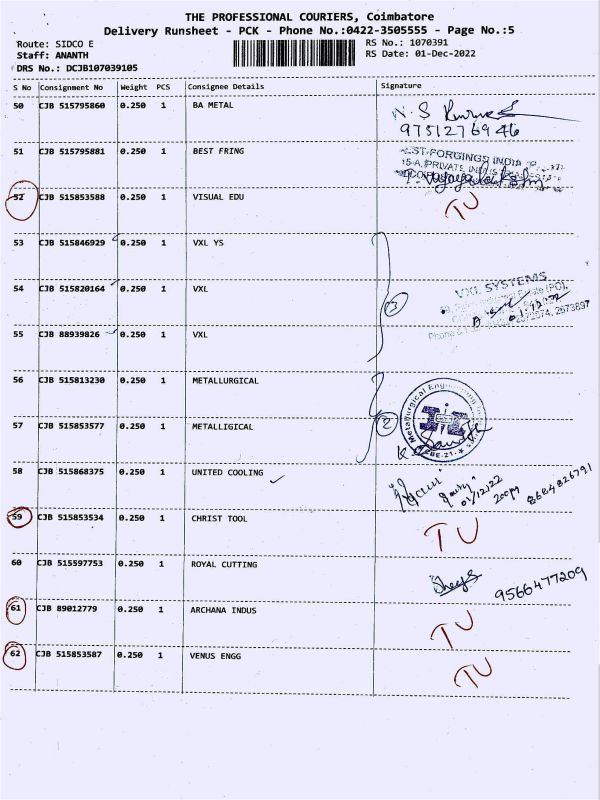 THE PROFESSIONAL COURIERS, Coimbatore
Delivery Runsheet - PCK - Phone No.:0422-3505555 - Page No.:5
Route: SIDCO E RS No.: 1070391
Staff: ANANTH RS Date: 01-Dec-2022
DRS No.: DCJB107039105
S No Consignment No Weight PCS Consignee Details Signature
50 CJB 515795860 0.250 1 BA METAL
9751276946
51 CJB 515795881 0.250 1 BEST FRING
ST-FORGINGS INDIA
15-A, PRIVATE
52 CJB 515853588 0.250 1 VISUAL EDU TU
53 CJB 515846929 0.250 1 VXL YS
54 CJB 515820164 0.250 1 VXL 3 VXL SYSTEMS
2673697
55 CJB 88939826 0.250 1 VXL
56 CJB 515813230 0.250 1 METALLURGICAL
57 CJB 515853577 0.250 1 METALLIGICAL 2 Metallurgical
58 CJB 515868375 0.250 1 UNITED COOLING 01/12/22 8684826791
59 CJB 515853534 0.250 1 CHRIST TOOL TU
60 CJB 515597753 0.250 1 ROYAL CUTTING 9566477209
61 CJB 89012779 0.250 1 ARCHANA INDUS TU
62 CJB 515853587 0.250 1 VENUS ENGG TU